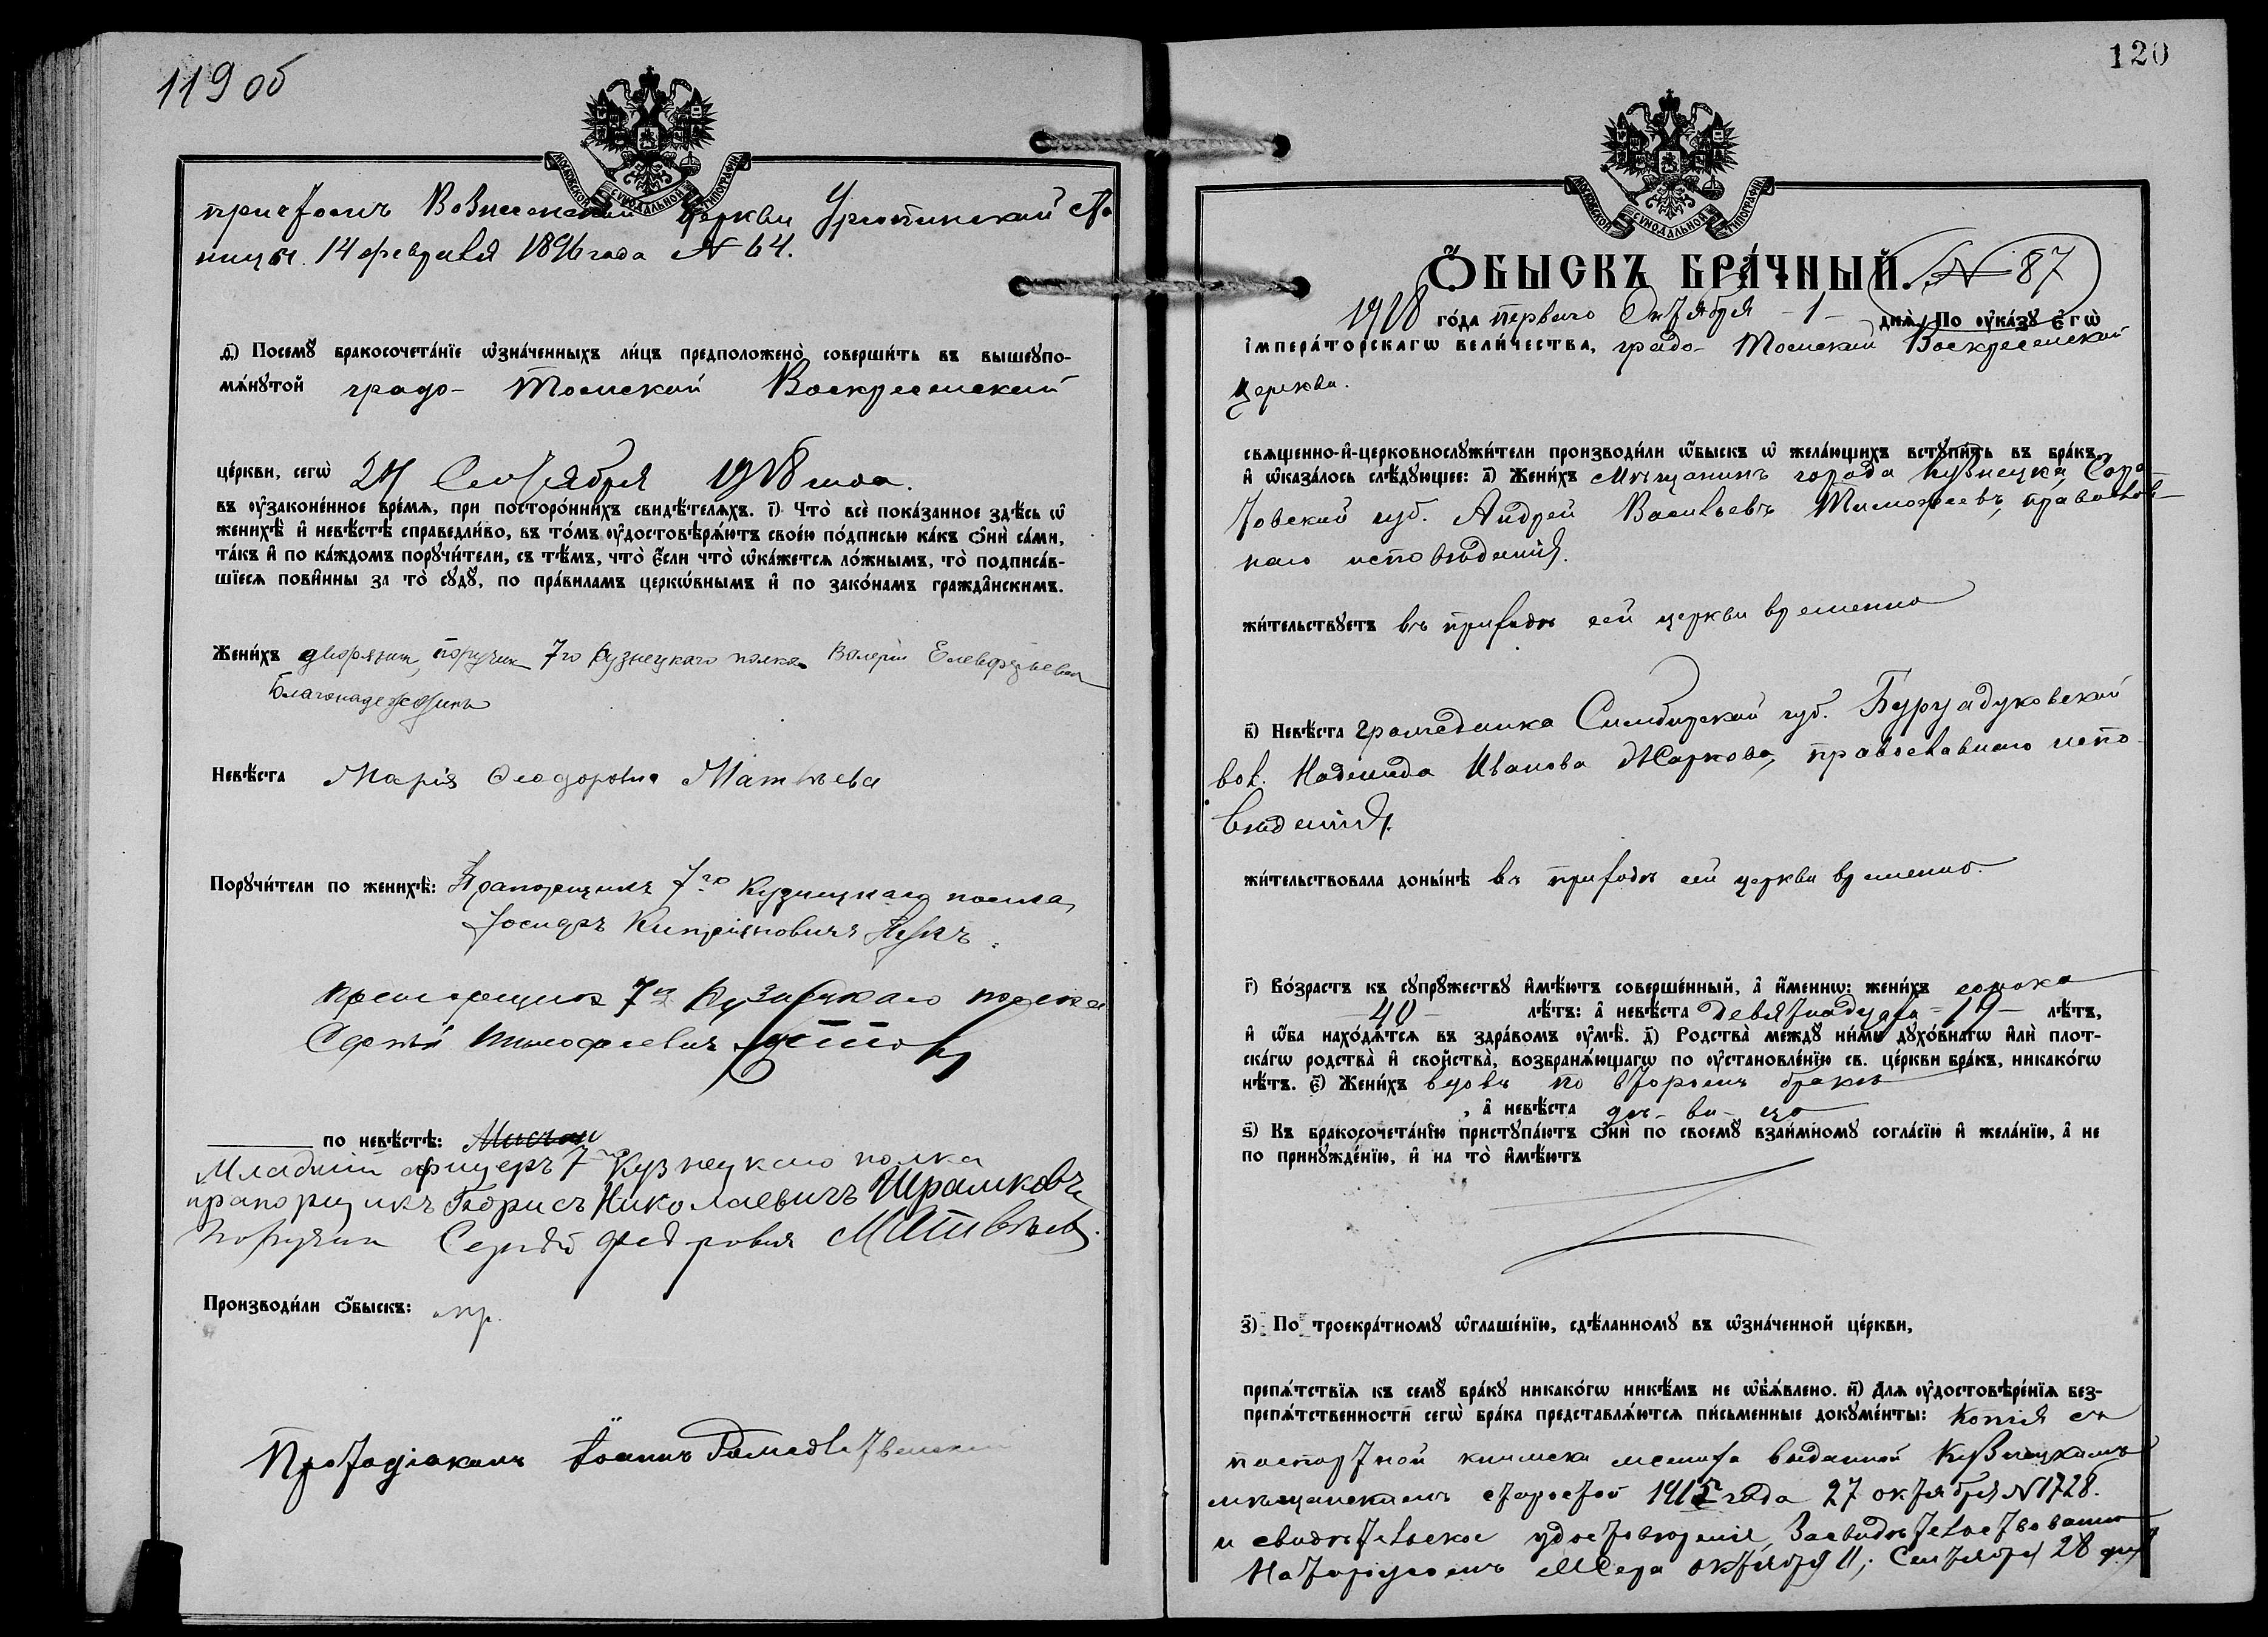 119 об
МОСКОВСКОЙ СѴНОДАЛЬНОЙ ТИПОГРАФІИ
причтомъ Вознесенской церкви Урюпинской ста
ницы 14 февраля 1896 года № 64.
ѳ҃) Посемꙋ̀ бракосочета́нїе ѡзна́ченныхъ ли́цъ предположено̀ соверши́ть въ вышеꙋпо-
мѧ́нꙋтой градо- Томской Воскресенской
це́ркви, сегѡ̀ 24 Сентября 1918 года.
въ оу҆законе́нное вре́мѧ, при посторо́ннихъ свидѣ́телѧхъ. і҃) Что̀ всѐ пока́занное здѣ́сь ѡ҆
женихѣ̀ и҆ невѣ́стѣ справедли́во, въ то́мъ оу҆достовѣрѧ́ютъ свое́ю по́дписью ка́къ ѻ҆нѝ са́ми,
та́къ и҆ по ка́ждомъ порꙋчи́тели, съ тѣ́мъ, что̀ є҆́сли что̀ ѡ҆ка́жетсѧ ло́жнымъ, то̀ подписа́в-
шїесѧ пови́нны за то̀ сꙋдꙋ̀, по пра́виламъ церкѡ́внымъ и҆ по зако́намъ гражда́нскимъ.
Жени́хъ дворянин, поручик 7го Кузнецкаго полка Валерiй
Благонадеждинъ
Невѣ́ста Марія Ѳеодоровна Матвѣева
Порꙋчи́тели по женихѣ̀: Прапорщикъ 7го Кузнецкаго полка
Іосифъ Кипріяновичъ
прапорщик 7го Кузнецкаго полка
Сергѣй Тимофеевич
по невѣ́стѣ:
Младшій офицеръ 7го Кузнецкаго полка
прапорщикъ Борисъ Николаевичъ Шрамковъ
Поручик Сергѣй Матвѣев.
Производи́ли ѻ҆́быскъ: пр.
Протодіаконъ Іоаннъ
120
МОСКОВСКОЙ СѴНОДАЛЬНОЙ ТИПОГРАФІИ
Ѻ҆БЫСКЪ БРА́ЧНЫЙ. № 87
1918 го́да перваго Октября - 1 - днѧ̀, По оу҆ка́зꙋ Є҆гѡ̀
І҆мпера́торскагѡ вели́чества, градо- Томской Воскресенской
церкви.
свѧще́нно-и҆-церковнослꙋжи́тели производи́ли ѡ҆́быскъ ѡ҆ жела́ющихъ встꙋпи́ть въ бра́къ,
и҆ ѡ҆каза́лось слѣ́дꙋющее: а҃) Жени́хъ мѣщанинъ города Кузнецка Сара-
товской губ. Андрей Васильевъ Тимофеевъ, православ-
наго исповѣданія.
жи́тельствꙋетъ въ приходѣ сей церкви временно
в҃) Невѣ́ста гражданка Симбирской губ.
вол. Надежда Иванова Жаркова, православнаго испо-
вѣданія.
жи́тельствовала доны́нѣ въ приходѣ сей церкви временно.
г҃) Во́зрастъ къ сꙋпрꙋ́жествꙋ и҆мѣ́ютъ соверше́нный, а҆ и҆́меннѡ: жени́хъ сорока
- 40 - лѣ́тъ: а҆ невѣ́ста девятнадцати - 19 - лѣ́тъ,
и҆ ѡ҆́ба нахо́дѧтсѧ въ здра́вомъ оу҆мѣ̀. д҃) Родства̀ междꙋ̀ ни́ми дꙋхо́внагѡ и҆лѝ плот-
ска́гѡ родства̀ и҆ сво́йства̀, возбранѧ́ющагѡ по оу҆становле́нїю св. це́ркви бра́къ, никако́гѡ
нѣ́тъ. є҃) Жени́хъ вдовъ по второмъ бракѣ
, а҆ невѣ́ста дѣ- ви- ца
ѕ҃) Къ бракосочета́нїю пристꙋпа́ютъ ѻ҆нѝ по своемꙋ̀ взаи́мномꙋ согла́сїю и҆ жела́нїю, а҆ не
по принꙋжде́нїю, и҆ на то̀ и҆мѣ́ютъ
з҃) По троекра́тномꙋ ѡ҆глаше́нїю, сдѣ́ланномꙋ въ ѡ҆зна́ченной це́ркви,
препѧ́тствїѧ къ семꙋ̀ бра́кꙋ никако́гѡ никѣ́мъ не ѡ҆б̾ѧ́влено. и҃) Длѧ̀ оу҆достовѣре́нїѧ без-
препѧ́тственности сегѡ̀ бра́ка представлѧ́ютсѧ пи́сьменные докꙋме́нты: копія съ
паспортной книжки жениха выданной Кузнецкимъ
мѣщанскимъ старостой 1915 года 27 октября № 1728.
и свидѣтельское удостовѣреніе, засвидѣтельствованное
Нотаріусомъ октября 11, Сентября 28 дня